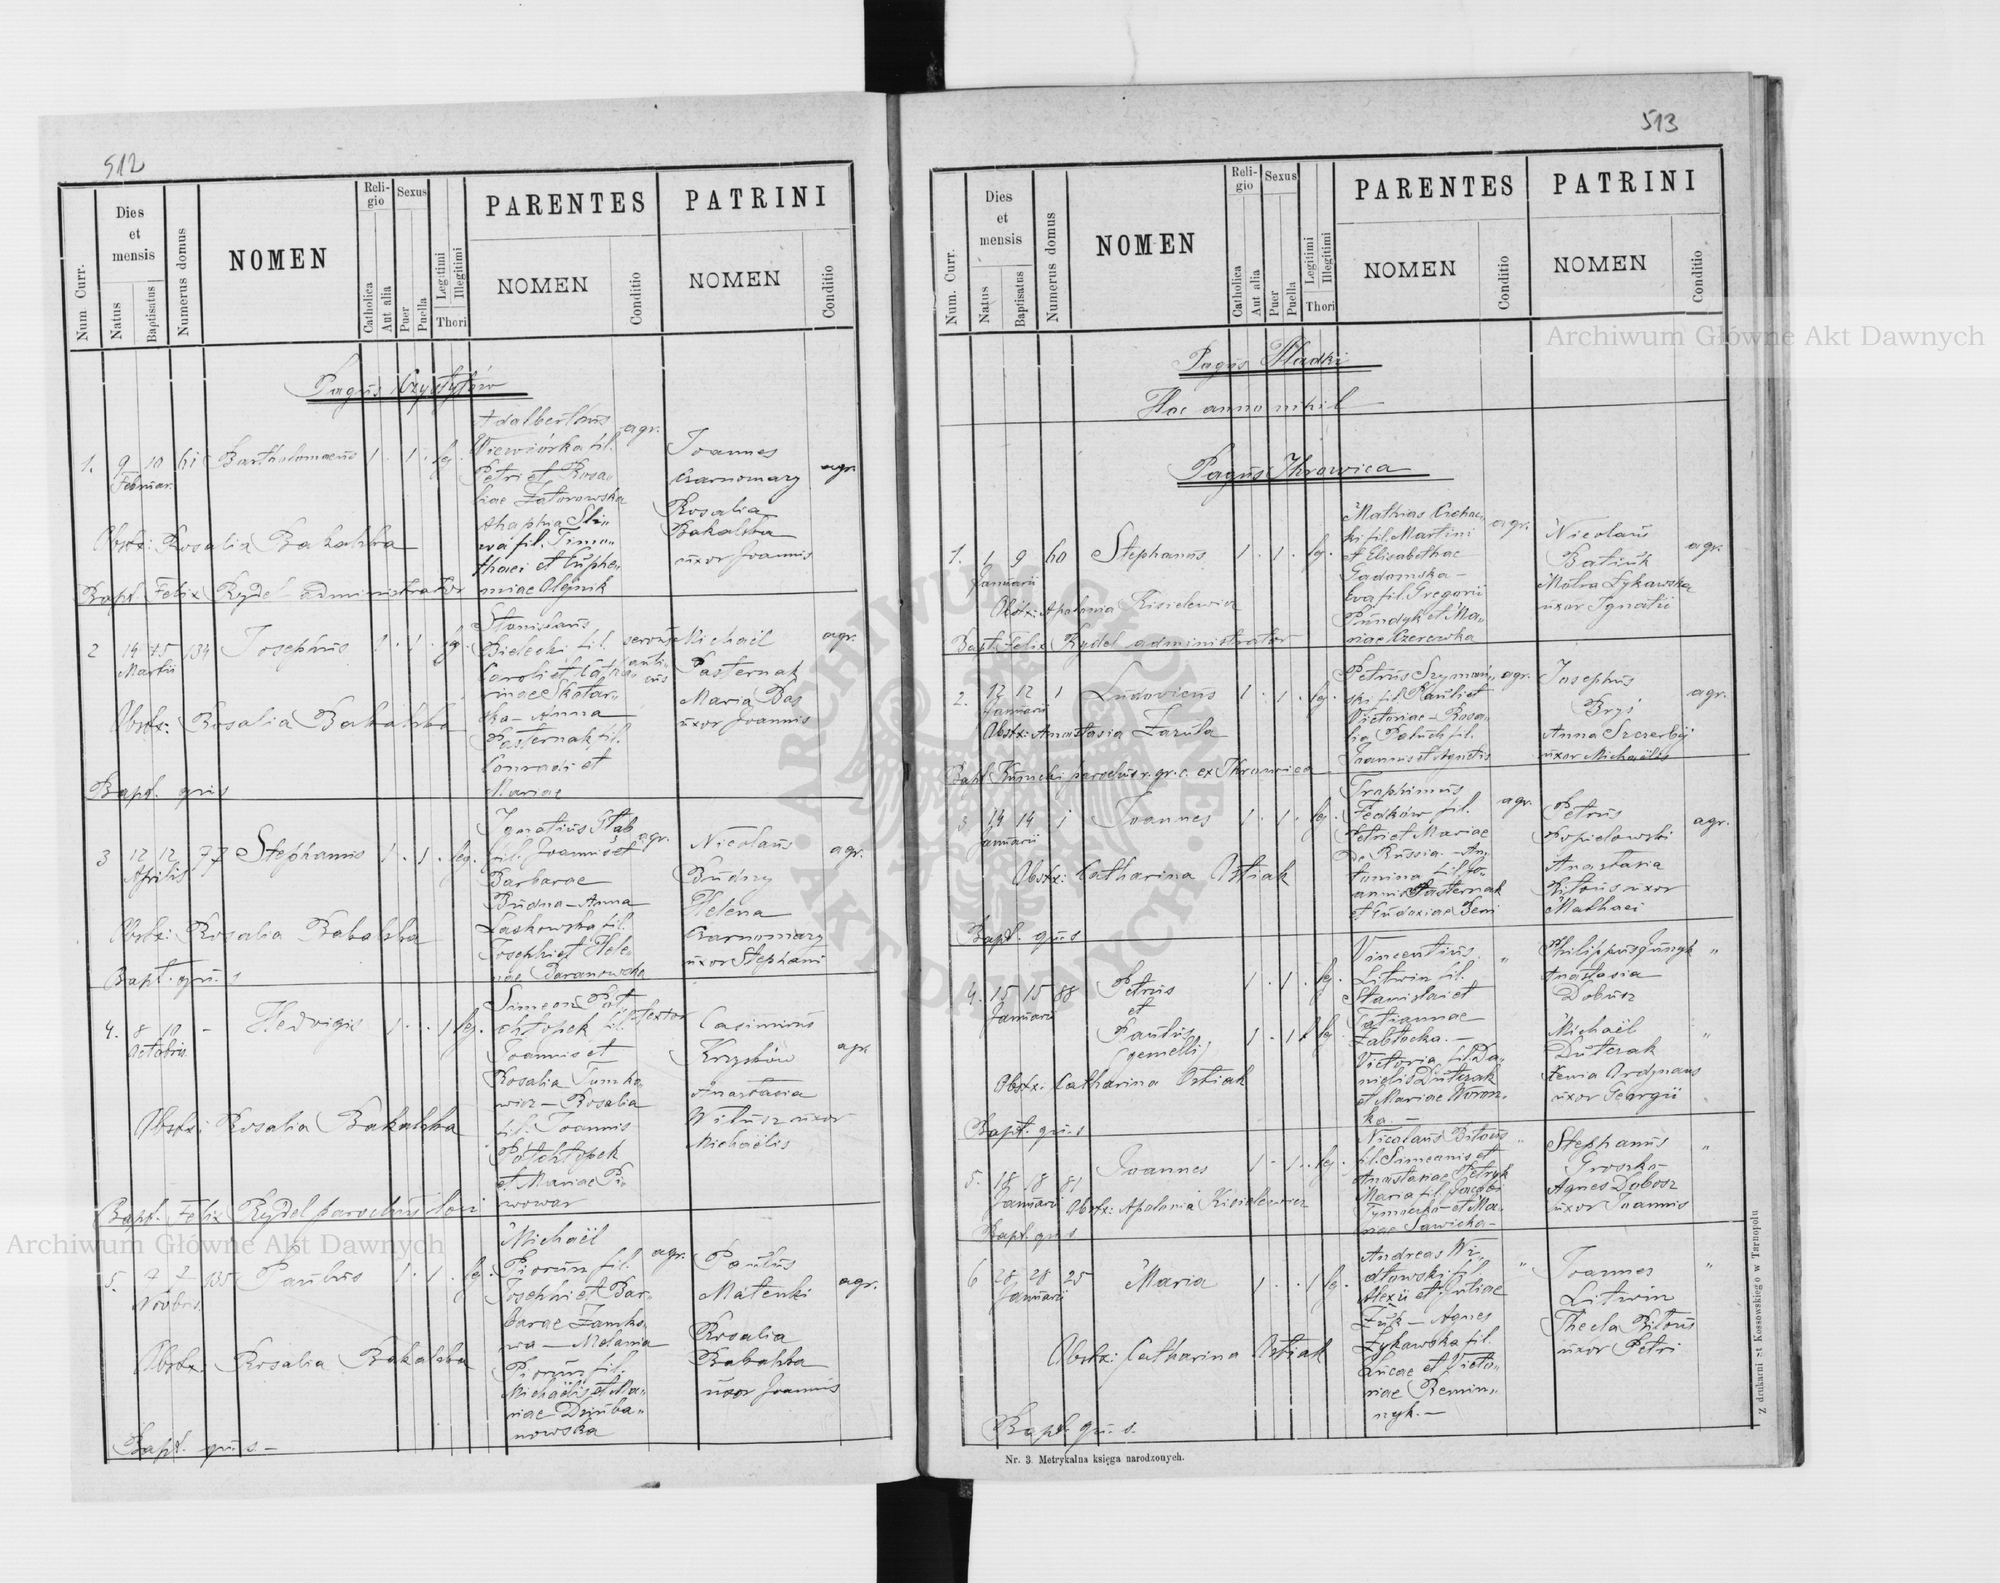 512
Num. Curr.
Dies et mensis
Natus
Baptisatus
Numerus domus
NOMEN
Religio
Catholica
Aut alia
Sexus
Puer
Puella
Legitimi
Illegitimi
Thori
PARENTES
NOMEN
Conditio
PATRINI
NOMEN
Conditio
Pagus
1. 9 10 61 Bartholomaeus 1 . 1 . leg.
Februar.
Adalbertus agr.
Wiewiórka fil.
Petri et Rosa-
liae Zatorowska
Ahaphia
fil. Timo-
thaei et Euphe-
miae Olejnik
Joannes agr.
Czarnomazy
Rosalia
Bakalska
uxor Joannis
Obstx: Rosalia Bakalska
Bapt. Felix Rydel administrator
2 14 15 134 Josephus 1 . 1 . leg.
Martii
Stanislaus
Bielecki fil.
Caroli et Catha-
rinae Skotar-
ska - Anna
Pasternak fil.
Conradi et
Mariae
Michaël agr.
Pasternak
Maria Bas
uxor Joannis
Obstx: Rosalia Bakalska
Bapt. qui s
3 12 12 77 Stephanus 1 . 1 . leg.
Aprilis
Ignatius agr.
fil. Joannis et
Barbarae
Budna - Anna
Laskowska fil.
Josephi et Hele-
nae Baranowska
Nicolaus agr.
Budny
Helena
Czarnomazy
uxor Stephani
Obstx: Rosalia Bakalska
Bapt. qui s
4. 8 10 - Hedvigis 1 . . 1 leg.
Octobris
Simeon
fil. textor
Joannis et
Rosalia Tumko-
wicz - Rosalia
fil. Joannis
et Mariae Pi-
wowar
Casimirus
Krzysków agr.
Anastasia
uxor
Michaëlis
Obstx: Rosalia Bakalska
Bapt. Felix Rydel parochus loci
5. 7 7 135 Paulus 1 . 1 . leg.
Novbris
Michaël
Piorun fil. agr.
Josephi et Bar-
barae Zamko-
wa - Melania
Piorun fil.
Michaëlis et Ma-
riae Dziuba-
nowska
Paulus
Matenki agr.
Rosalia
Bakalska
uxor Joannis
Obstx: Rosalia Bakalska
Bapt. qui s -
513
Num. Curr.
Dies et mensis
Natus
Baptisatus
Numerus domus
NOMEN
Religio
Catholica
Aut alia
Sexus
Puer
Puella
Legitimi
Illegitimi
Thori
PARENTES
NOMEN
Conditio
PATRINI
NOMEN
Conditio
Pagus Hladki
Hoc anno nihil
Pagus Ihrowica
1. 1 9 60 Stephanus 1 . 1 . leg.
Januarii
Mathias agr.
fil. Martini
et Elisabethae
Gadomska -
Eva fil. Gregorii
Pundyk et Ma-
riae Czerewka
Nicolaus
Batiuk agr.
Zykowska
uxor Ignatii
Obstx: Apolonia Kisielewicz
Bapt. Felix Rydel administrator
2. 12 12 1 Ludovicus 1 . 1 . leg.
Januarii
Petrus Szymań- agr.
ski fil. Pauli et
Victoriae - Rosa-
lia Paluch fil.
Joannis et Agnetis
Josephus
Bryś agr.
Anna Szczerbij
uxor Michaëlis
Obstx: Anastasia Zazula
Bapt. parochus r. gr. c. ex Ihrowica
3. 14 14 1 Joannes 1 . 1 . leg.
Januarii
Traphimus
Fedków fil. agr.
Petri et Mariae
De Russia. - An-
tonina fil. Jo-
annis Pasternak
et Eudoxiae
Petrus agr.
Popielowski
Anastasia
Bitous uxor
Mathaei
Obstx: Catharina Ostiak
Bapt. qui s
4. 15 15 88 Petrus 1 . 1 . leg.
Januarii
et
Paulus 1 . 1 . leg.
(gemelli)
Vincentius "
Litwin fil.
Stanislai et
Tatiannae
Zabłocka. -
Victoria fil. Da-
nielis Dutczak
et Mariae Woron-
ka. -
Philippus "
Anastasia
Dobusz
Michaël "
Dutczak
Xenia
uxor Georgii
Obstx: Catharina Ostiak
Bapt. qui s
5. 18 18 81 Joannes 1 . 1 . leg.
Januarii
Nicolaus Bitous "
fil. Simeonis et
Anastasiae Petryk
Maria fil. Jacobi
et Ma-
riae Sawicka -
Stephanus "
Groszko -
Agnes Dobosz
uxor Joannis
Obstx: Apolonia Kisielewicz
Bapt. qui s
6 28 28 25 Maria 1 . . 1 leg.
Januarii
Andreas Wi- "
dłowski fil.
Alexii et Juliae
Żuk - Agnes
Zykowska fil.
Lucae et Victo-
riae Remin-
nyk. -
Joannes "
Litwin
Thecla Bitous
uxor Petri
Obstx: Catharina Ostiak
Bapt. qui s.
Nr. 3. Metrykalna księga narodzonych.
Z drukarni St Kossowskiego w Tarnopolu
Archiwum Główne Akt Dawnych
Archiwum Główne Akt Dawnych
ARCHIWUM GŁÓWNE AKT DAWNYCH